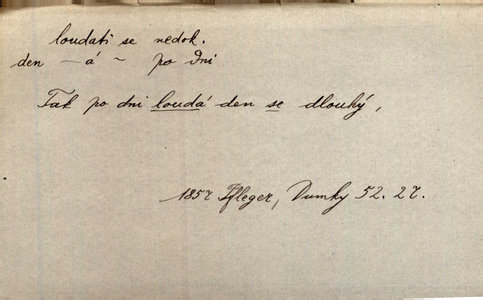 loudati se nedok.
den – á ~ po dni
Tak po dni loudá den se dlouhý,
1857 Pfleger, Dumky 52. 27.